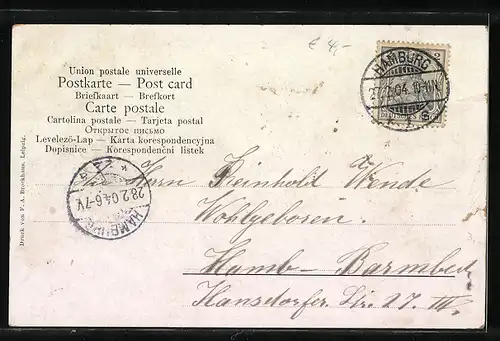 € 4,-
Union postale universelle
Postkarte — Post card
Briefkaart — Brefkort
Carte postale
Cartolina postale — Tarjeta postal
Открытое письмо
Levelező-Lap — Karta korespondencyjna
Dopisnice — Korespondenční listek
HAMBURG
27.2.04. 10-11V.
HAMBURG
28.2.04.6-7V.
Herrn Reinhold Wende
Wohlgeboren.
Hamb-Barmbeck
Hansdorfer Str. 27. III.
Druck von F. A. Brockhaus, Leipzig.